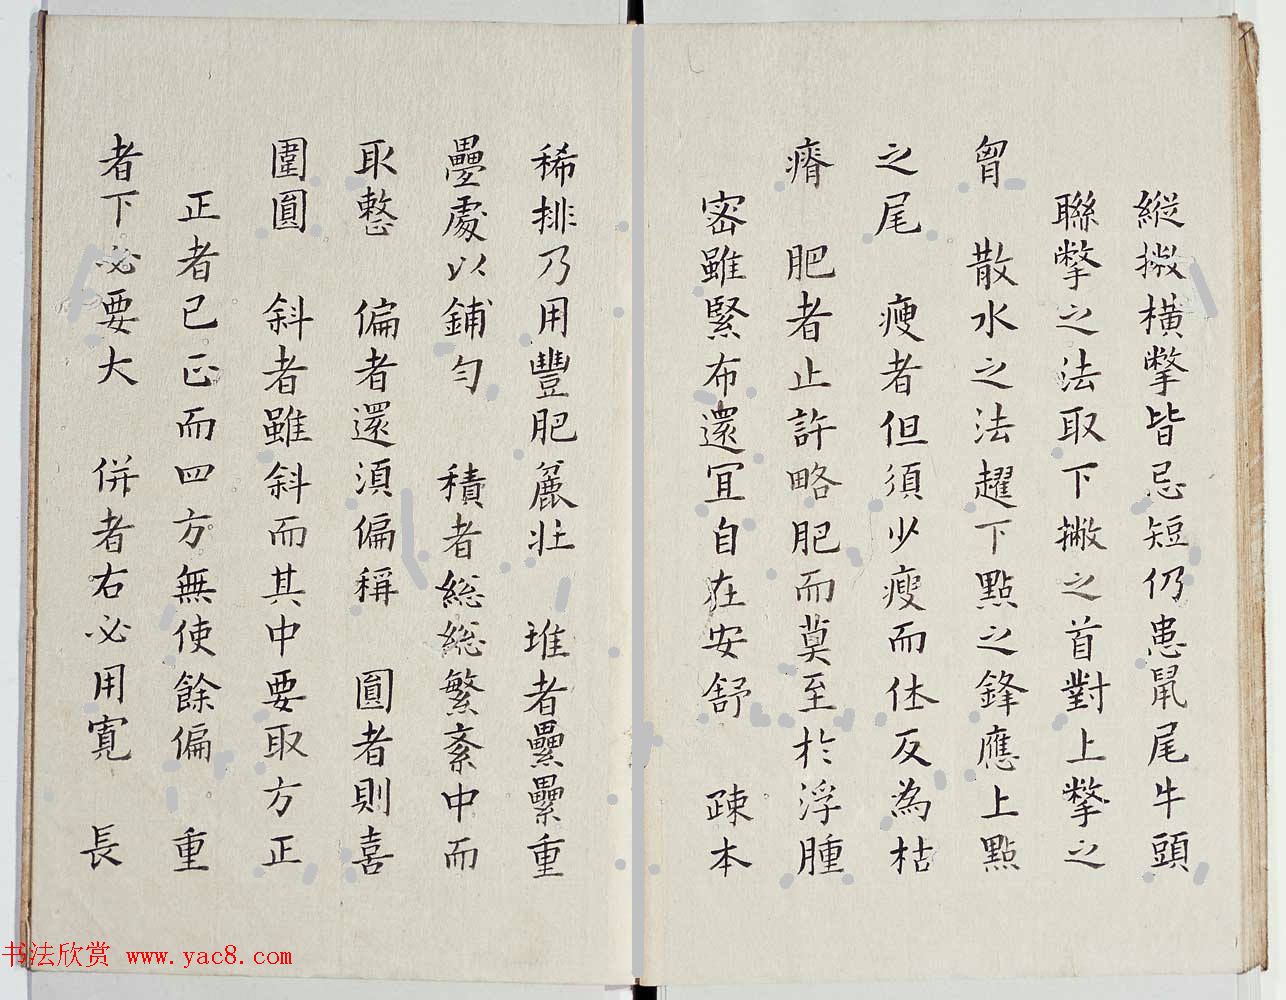 縱撇橫撆皆忌短仍患鼠尾牛頭
聯撆之法取下撇之首對上撆之
胷　散水之法趯下點之鋒應上點
之尾　瘦者但須少瘦而休反為枯
瘠　肥者止許略肥而莫至於浮腫
密雖緊布還宜自在安舒　疎本
稀排乃用豐肥麄壯　堆者壘壘重
疊處以鋪勻　積者総総繁紊中而
取整　偏者還須偏稱　圓者則喜
圍圓　斜者雖斜而其中要取方正
正者已正而四方無使餘偏　重
者下必要大　併者右必用寬　長
书法欣赏 www.yac8.com